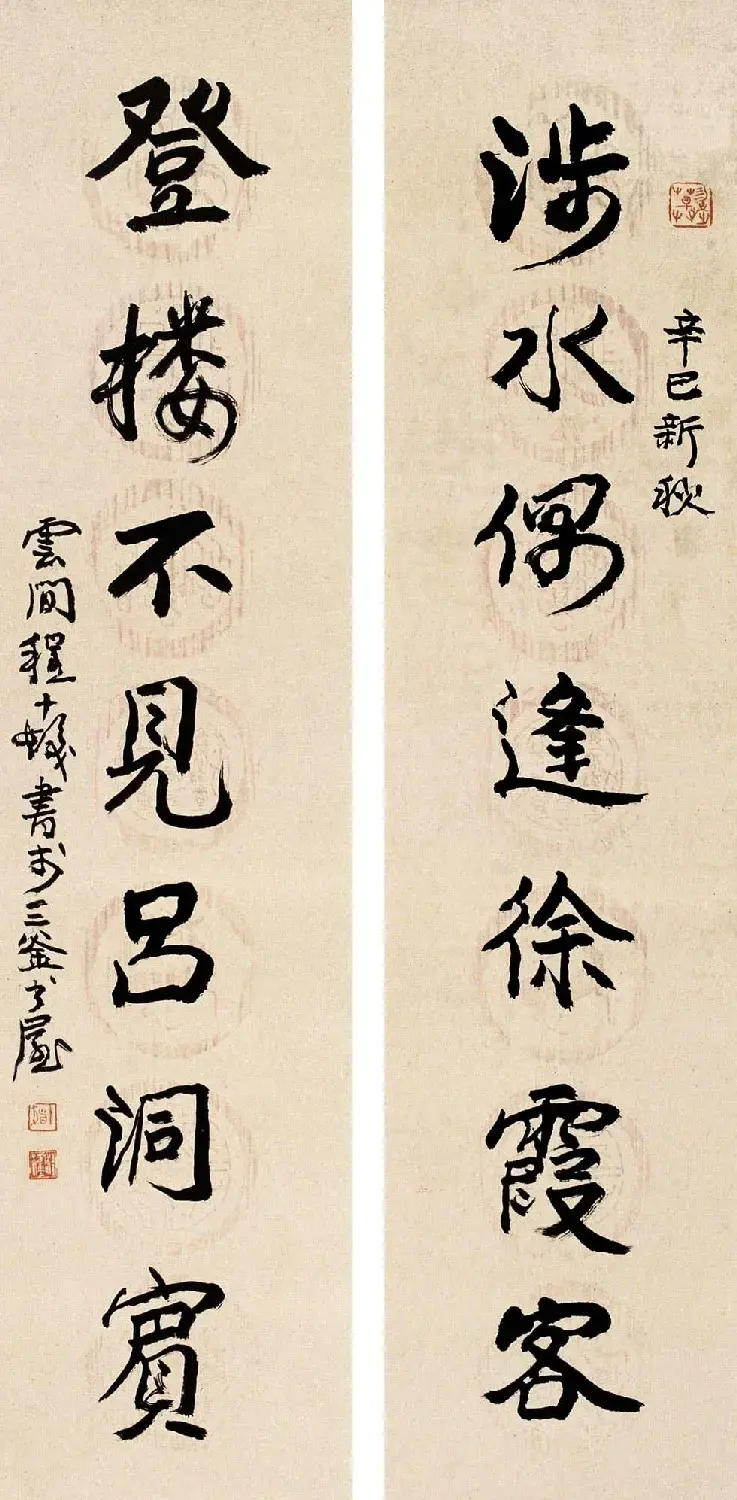 涉水偶逢徐霞客
辛巳新秋
登楼不見呂洞賓
雲間程十髮書於三釜書屋